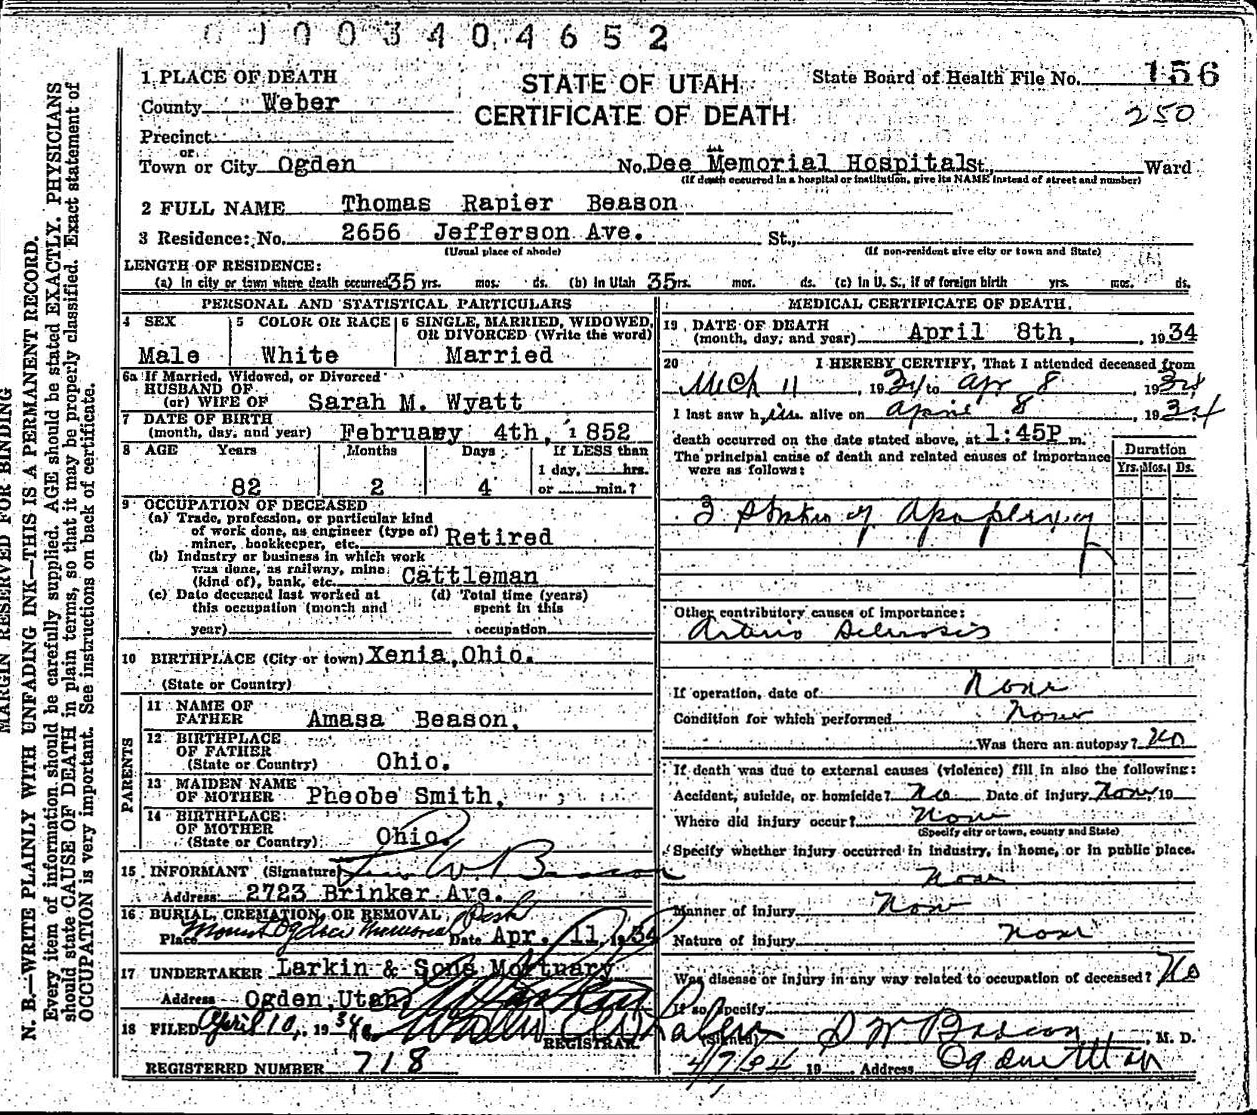 0 0 0 0 3 4 0 4 6 5 2
1 PLACE OF DEATH
County Weber
STATE OF UTAH
CERTIFICATE OF DEATH
State Board of Health File No. 156
250
Precinct
or
Town or City Ogden No. Dee Memorial Hospital St., Ward
(If death occurred in a hospital or institution, give its NAME instead of street and number)
2 FULL NAME Thomas Rapier Beason
3 Residence: No. 2656 Jefferson Ave. St.,
(Usual place of abode) (If non-resident give city or town and State)
LENGTH OF RESIDENCE:
(a) In city or town where death occurred 35 yrs. mos. ds. (b) In Utah 35 yrs. mos. ds. (c) In U. S., if of foreign birth yrs. mos. ds.
PERSONAL AND STATISTICAL PARTICULARS
4 SEX
Male
5 COLOR OR RACE
White
6 SINGLE, MARRIED, WIDOWED,
OR DIVORCED (Write the word)
Married
6a If Married, Widowed, or Divorced
HUSBAND OF
(or) WIFE OF Sarah M. Wyatt
7 DATE OF BIRTH
(month, day, and year) February 4th, 1852
8 AGE Years Months Days If LESS than
1 day, hrs.
82 2 4 or min.?
9 OCCUPATION OF DECEASED
(a) Trade, profession, or particular kind
of work done, as engineer (type of)
miner, bookkeeper, etc. Retired
(b) Industry or business in which work
was done, as railway, mine
(kind of), bank, etc. Cattleman
(c) Date deceased last worked at
this occupation (month and
year)
(d) Total time (years)
spent in this
occupation
10 BIRTHPLACE (City or town) Xenia, Ohio.
(State or Country)
PARENTS
11 NAME OF
FATHER Amasa Beason.
12 BIRTHPLACE
OF FATHER
(State or Country) Ohio.
13 MAIDEN NAME
OF MOTHER Pheobe Smith,
14 BIRTHPLACE
OF MOTHER
(State or Country) Ohio.
15 INFORMANT (Signature) W. Beason
Address 2723 Brinker Ave.
16 BURIAL, CREMATION, OR REMOVAL
Place Mount Ogden Memorial Park Date Apr. 11, 1934
17 UNDERTAKER Larkin & Sons Mortuary
Address Ogden, Utah.
18 FILED April 10, 1934
REGISTRAR.
REGISTERED NUMBER 718
MEDICAL CERTIFICATE OF DEATH.
19 DATE OF DEATH
(month, day, and year) April 8th, , 1934
20 I HEREBY CERTIFY, That I attended deceased from
Mch 11, 1934 to Apr 8, 1934
I last saw him alive on April 8, 1934
death occurred on the date stated above, at 1:45P m.
The principal cause of death and related causes of importance
were as follows:
Duration
Yrs. Mos. Ds.
3 Strokes of Apoplexy
Other contributory causes of importance:
Arterio Sclerosis
If operation, date of None
Condition for which performed None
Was there an autopsy? No
If death was due to external causes (violence) fill in also the following:
Accident, suicide, or homicide? No Date of injury None, 19
Where did injury occur? None
(Specify city or town, county and State)
Specify whether injury occurred in industry, in home, or in public place.
None
Manner of injury None
Nature of injury None
Was disease or injury in any way related to occupation of deceased? No
If so specify
(Signed) M. D.
4/7/34 19 Address Ogden Utah
MARGIN RESERVED FOR BINDING
N. B.—WRITE PLAINLY WITH UNFADING INK—THIS IS A PERMANENT RECORD.
Every item of information should be carefully supplied. AGE should be stated EXACTLY. PHYSICIANS
should state CAUSE OF DEATH in plain terms, so that it may be properly classified. Exact statement of
OCCUPATION is very important. See instructions on back of certificate.